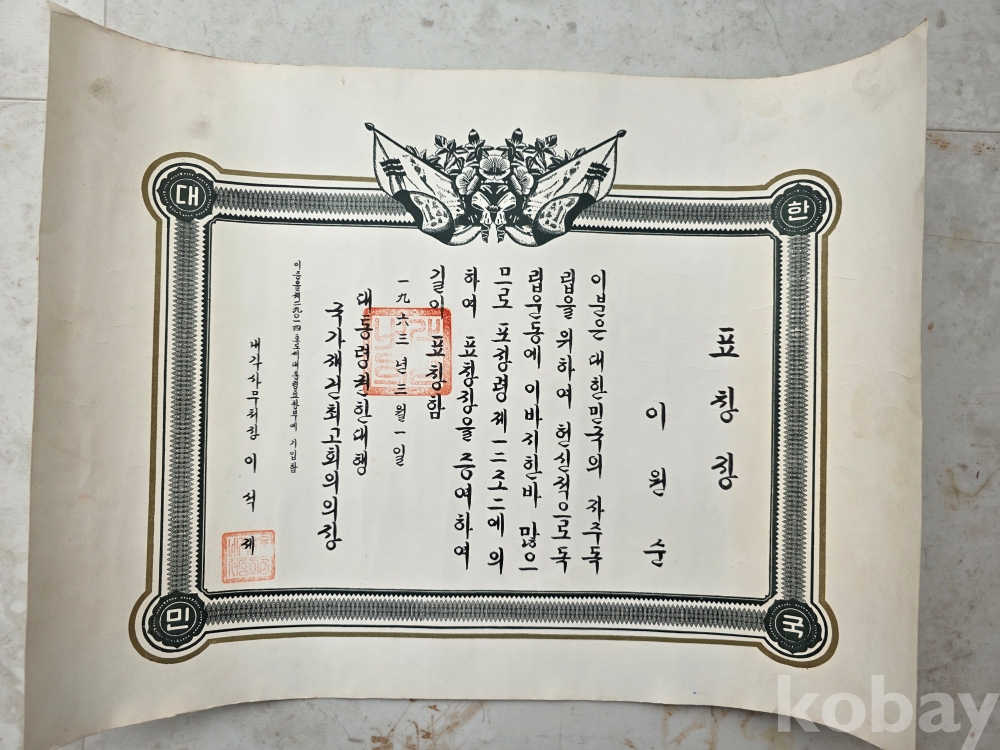 대 한
민 국
표창장
이원순
이분은 대한민국의 자주독
립을 위하여 헌신적으로 독
립운동에 이바지한바 많으
므로 포장령 제一二조二에 의
하여 표창장을 증여하여
길이 표창함
一九六三년 三월 一일
대통령권한대행
국가재건최고회의의장
이증을제 호로써대통령표창부에 기입함
내각사무처장 이석제
kobay